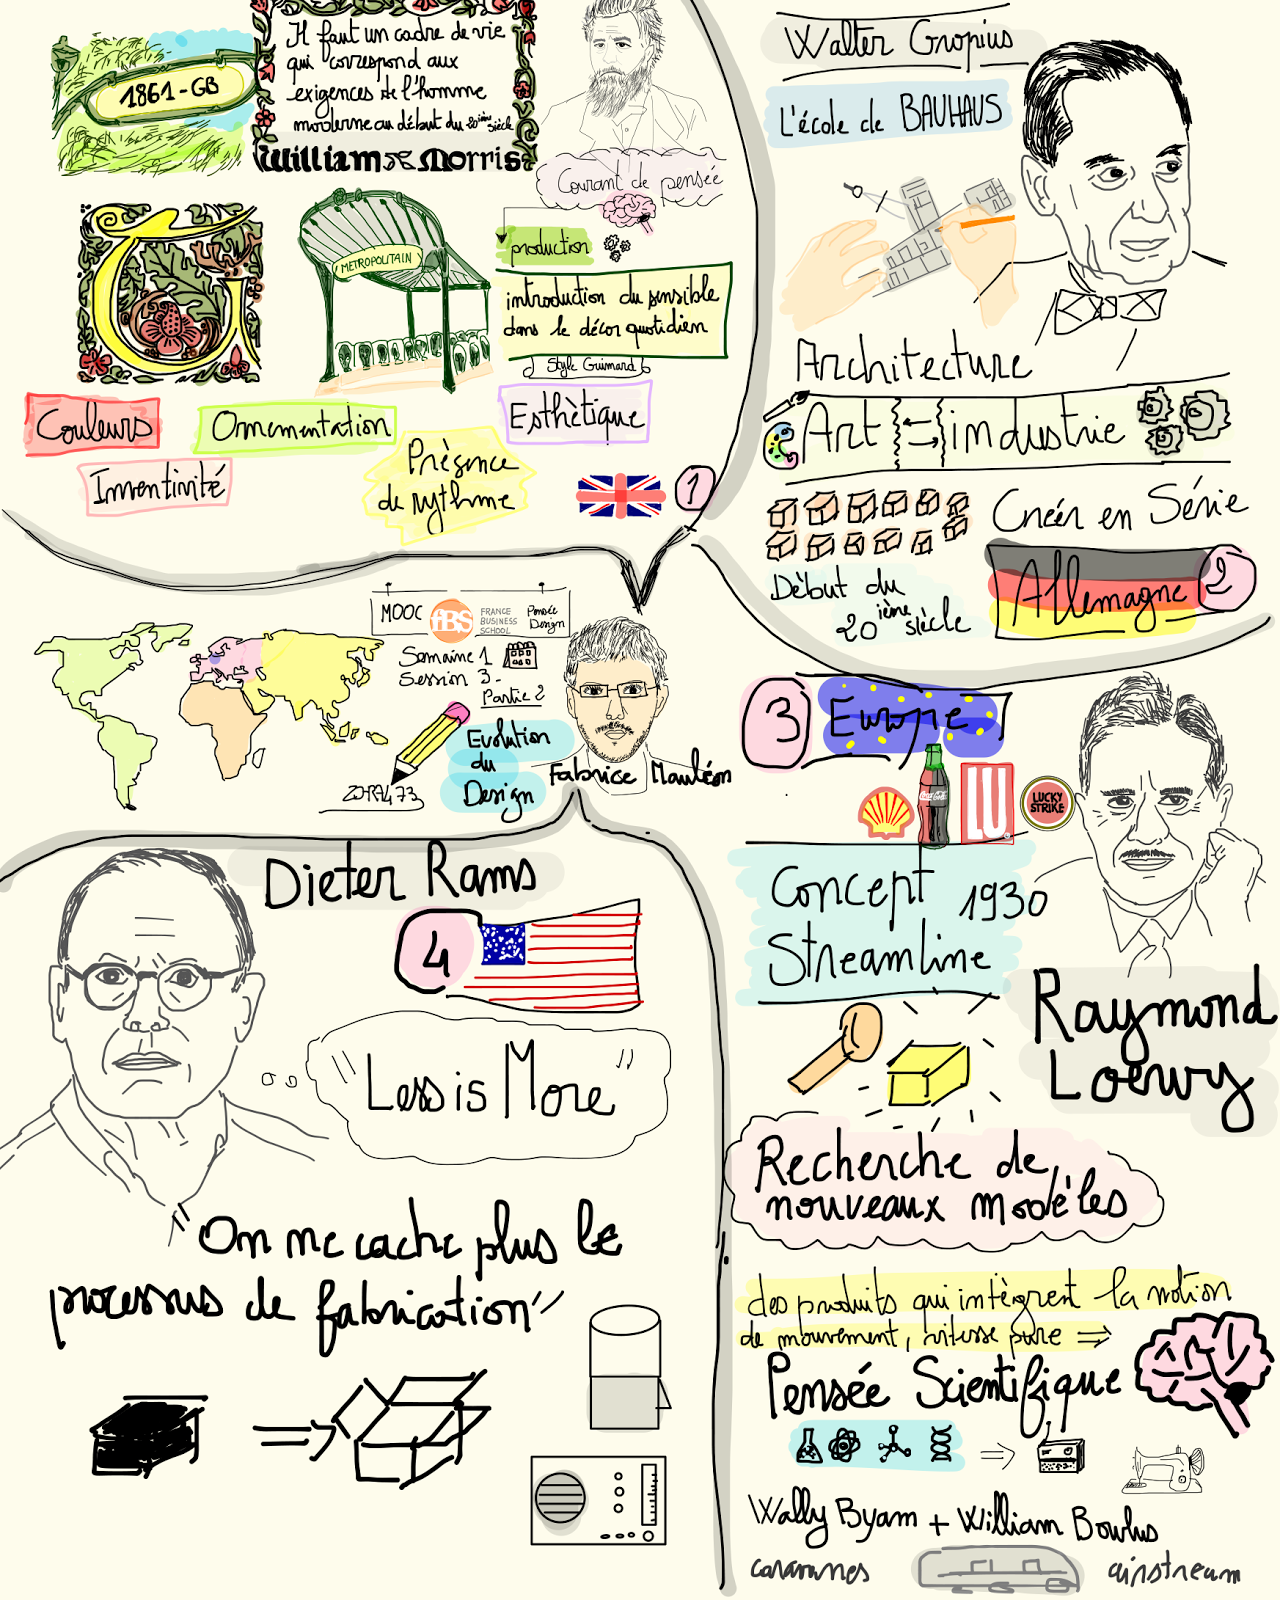 1861-GB
Il faut un cadre de vie
qui correspond aux
exigences de l'homme
moderne au début du 20ième siècle
William Morris
Courant de pensée
production
METROPOLITAIN
introduction du sensible
dans le décor quotidien
Style Guimard
Couleurs
Ornementation
Esthètique
Inventivité
Présence
de rythme
1
Walter Gropius
L'école de BAUHAUS
Architecture
Art
industrie
Créer en Série
Dèbut du
20ième siècle
Allemagne
2
MOOC
fBS
FRANCE
BUSINESS
SCHOOL
Pensée
Design
Semaine 1
Session 3-
Partie 2
Evolution
du
Design
Fabrice Mauléon
ZORA473
3
Europe
Coca-Cola
LU
LUCKY
STRIKE
Concept 1930
Streamline
Raymond
Loewy
Recherche de
nouveaux modèles
des produits qui intègrent la notion
de mouvement, vitesse pure =>
Pensée Scientifique
Wally Byam + William Bowlus
caravanes
airstream
Dieter Rams
4
"Less is More"
"On ne cache plus le
processus de fabrication"